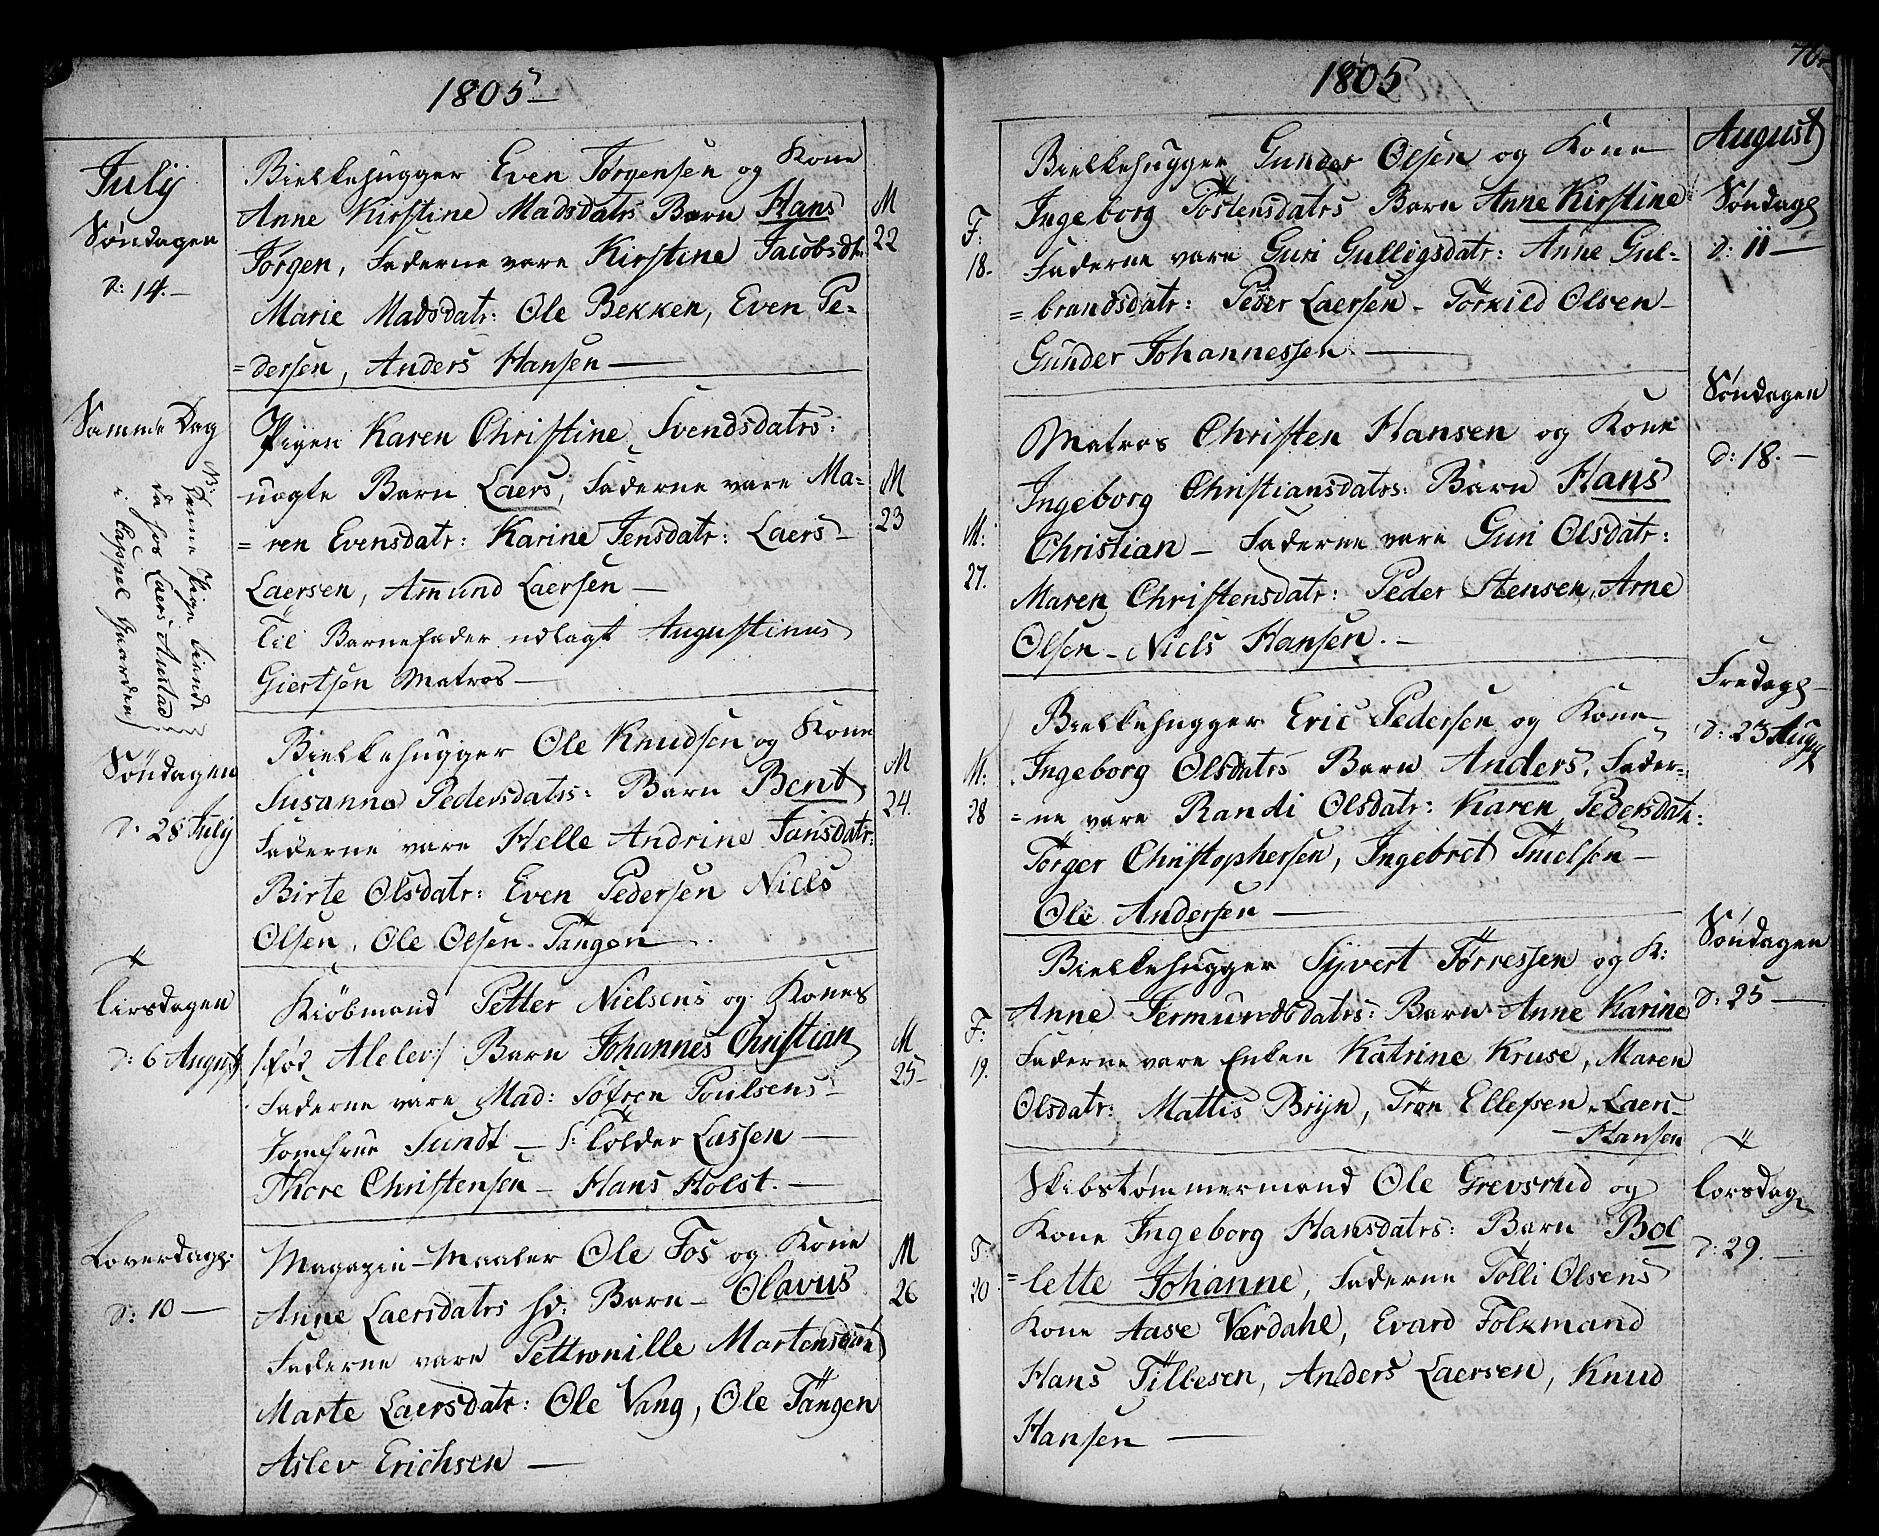 1805
July
Søndagen
d: 14.
Bielkehugger Even Jørgensen og Kone
Anne Kirstine Madsdatrs Barn Hans
Jørgen, Faderne vare Kirstine Jacobsdtr
Marie Madsdatr: Ole Bekken, Even Pe-
=dersen, Anders Hansen
M
22
Samme Dag
NB: denne Pige tiende
da hos Laers
i Cappel Gaarden
Pigen Karen Christine Svendsdatrs:
uægte Barn Laers, Faderne vare Ma-
=ren Evensdatr: Karine Jensdatr: Laers
Laersen, Amund Laersen
Til Barnefader udlagt Augustinus
Giertsen Matros
M
23
Søndagen
d: 28 July
Bielkehugger Ole Knudsen og Kone
Susanna Pedersdatrs: Barn Bent,
Faderne vare Helle Andrine Jansdatr:
Birte Olsdatr: Even Pedersen Niels
Olsen, Ole Olsen Tangen
M
24.
Tirsdagen
d: 6 August
Kiøbmand Petter Nielsens og Kones
/fød Alelev/ Barn Johannes Christian
Faderne vare Mad: Søfren Poulsens
Jomfrue Sundt – S: Tolder Lassen
Thore Christensen – Hans Holst.
M
25
Løverdags:
d: 10
Magazin-Maaler Ole Fos og Kone
Anne Laersdatrs hd: Barn – Olavus
Faderne vare Pettronille Martensdatr
Marte Laersdatr: Ole Vang, Ole Tangen
Aslev Erichsen
M
26
1805
70.
August
Søndags
d: 11
F:
18.
Bielkehugger Gunder Olsen og Kone
Ingeborg Tostensdatrs Barn Anne Kirstine
Faderne vare Guri Gulligsdatr: Anne Gul-
=brandsdatr: Peder Laersen – Torkild Olsen
Gunder Johannessen
Søndagen
d: 18.
M:
27.
Matros Christen Hansen og Kone
Ingeborg Christiansdatrs: Barn Hans
Christian – Faderne vare Guri Olsdatr:
Maren Christensdatr: Peder Stensen, Arne
Olsen – Niels Hansen.
Fredags
d: 23 Aug
M:
28
Bielkehugger Eric Pedersen og Kone
Ingeborg Olsdatrs Barn Anders, Fader-
=ne vare Randi Olsdatr: Karen Pedersdatr:
Torger Christophersen, Ingebret Truelsen
Ole Andersen
Søndagen
d: 25
F:
19.
Bielkehugger Syvert Torressen og K:
Anne Jermundsdatrs: Barn Anne Karine
Faderne vare Enken Katrine Kruse, Maren
Olsdatr: Mattis Bryn, Tron Ellefsen, Laers
Hansen
Torsdag
d: 29.
F.
20
Skibstømmermand Ole Grevsrud og
Kone Ingeborg Hansdatrs: Barn Bol
=lette Johanne, Faderne Tolli Olsens
Kone Aase Værdahl, Evard Folkmand
Hans Tillesen, Anders Laersen, Knud
Hansen